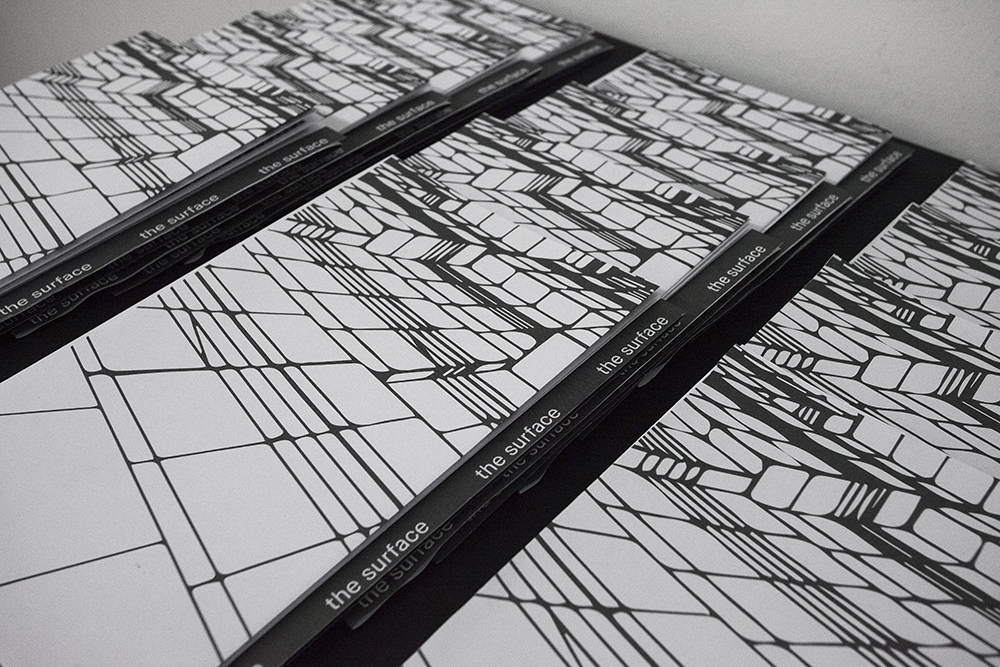 the surface
the surface
the surface
the surface
the surface
the surface
the surface
the surface
the surface
the surface
the surface
the surface
the surface
the surface